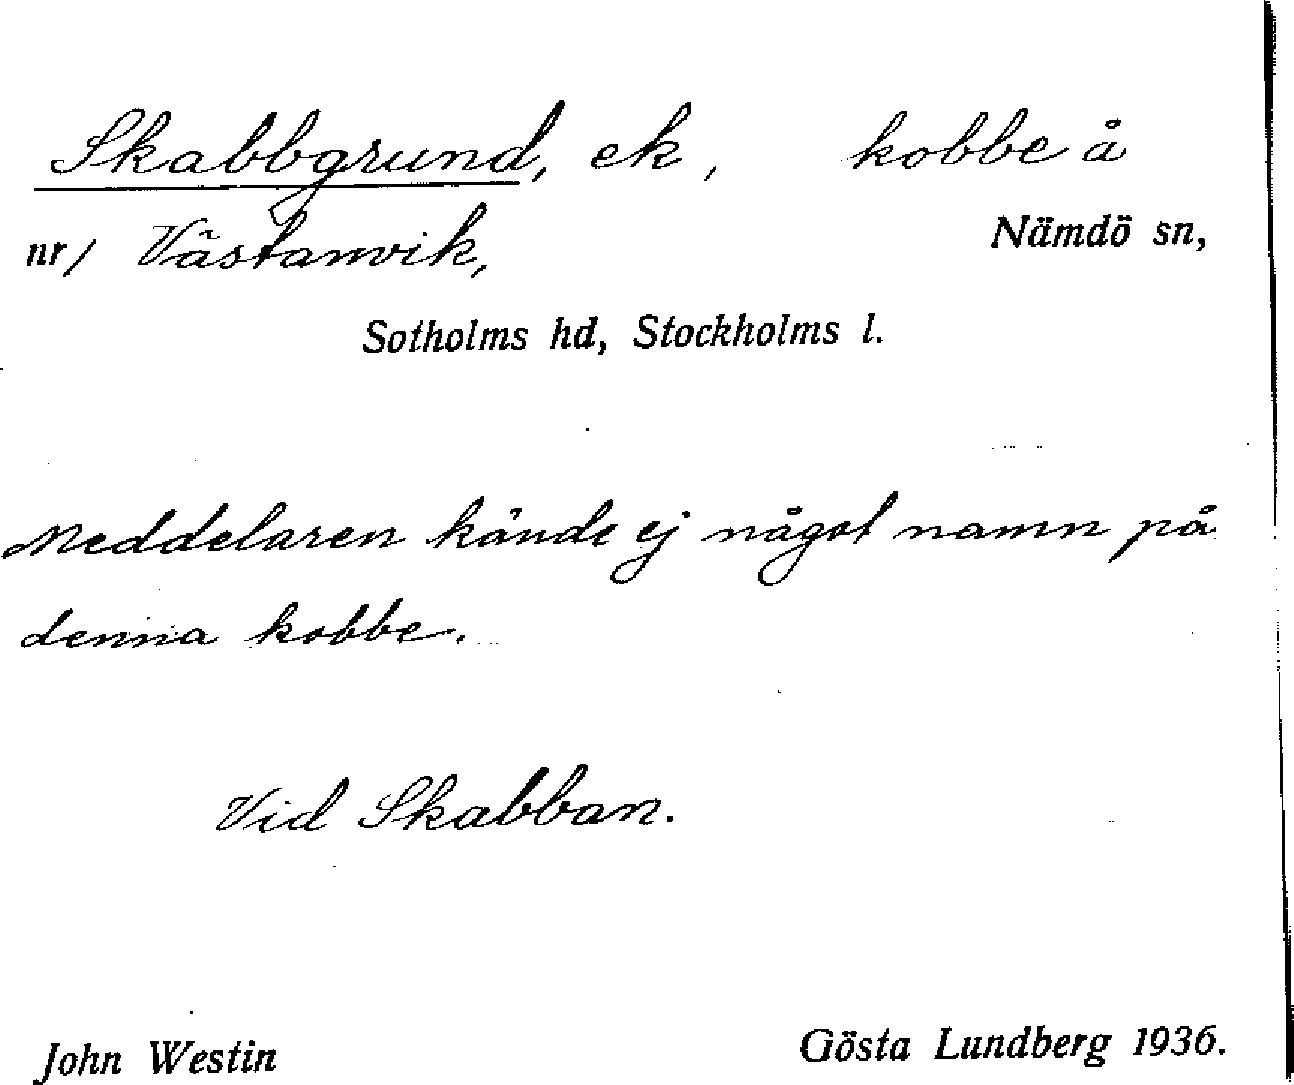 Skabbgrund, ek, kobbe å
nr/ Västanvik, Nämdö sn,
Sotholms hd, Stockholms l.
Meddelaren kände ej något namn på
denna kobbe.
Vid Skabban.
John Westin Gösta Lundberg 1936.